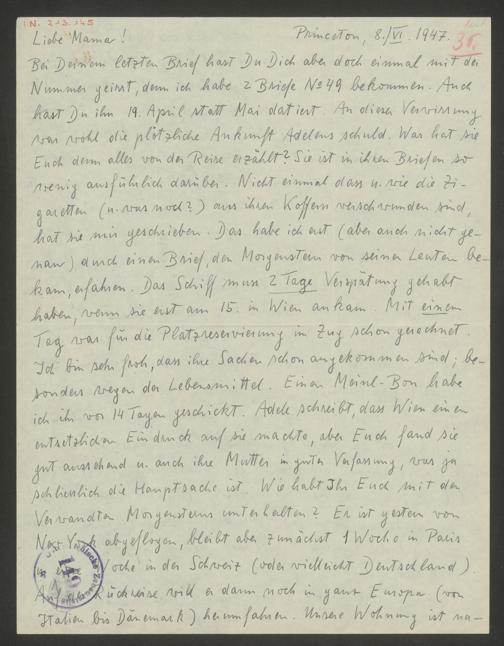 I.N. 213.145
Princeton, 8./VI. 1947.
36.
Liebe Mama!
Bei Deinem letzten Brief hast Du Dich aber doch einmal mit der
Nummer geirrt, denn ich habe 2 Briefe No 49 bekommen. Auch
hast Du ihn 19. April statt Mai datiert. An dieser Verwirrung
war wohl die plötzliche Ankunft Adelens schuld. Was hat sie
Euch denn alles von der Reise erzählt? Sie ist in ihren Briefen so
wenig ausführlich darüber. Nicht einmal dass u. wie die Zi-
garetten (u. was noch?) aus ihren Koffern verschwunden sind,
hat sie mir geschrieben. Das habe ich erst (aber auch nicht ge-
nau) durch einen Brief, den Morgenstern von seinen Leuten be-
kam, erfahren. Das Schiff muss 2 Tage Verspätung gehabt
haben, wenn sie erst am 15. in Wien ankam. Mit einem
Tag war für die Platzreservierung im Zug schon gerechnet.
Ich bin sehr froh, dass ihre Sachen schon angekommen sind; be-
sonders wegen der Lebensmittel. Einen Meinl-Bon habe
ich ihr vor 14 Tagen geschickt. Adele schreibt, dass Wien einen
entsetzlichen Eindruck auf sie machte, aber Euch fand sie
gut aussehend u. auch ihre Mutter in guter Verfassung, was ja
schliesslich die Hauptsache ist. Wie habt Ihr Euch mit den
Verwandten Morgensterns unterhalten? Er ist gestern von
New York abgeflogen, bleibt aber zunächst 1 Woche in Paris
oche in der Schweiz (oder vielleicht Deutschland).
Rückreise will er dann noch in ganz Europa (von
Italien bis Dänemark) herumfahren. Unsere Wohnung ist na-